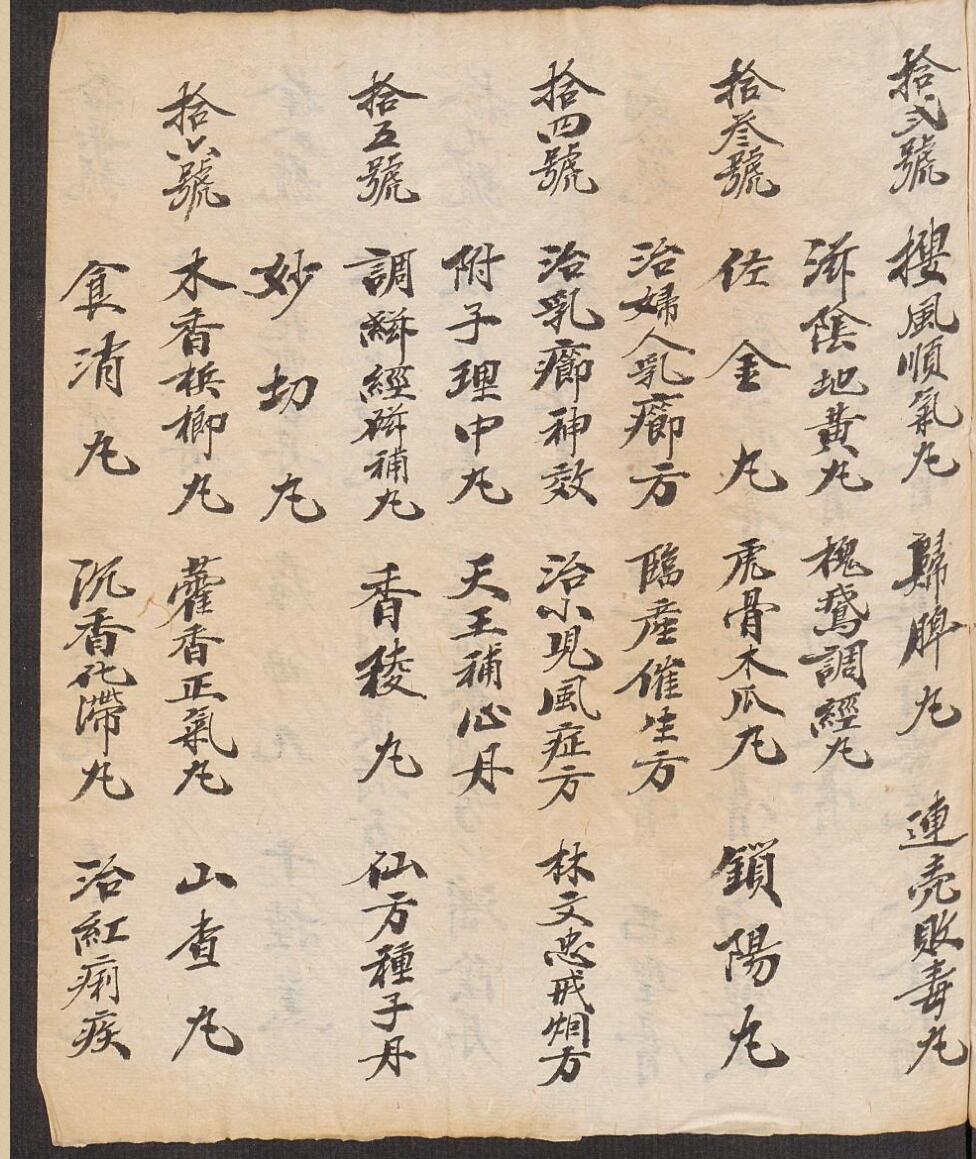 拾弍號 搜風順氣丸 歸脾丸 連売敗毒丸
滋陰地黃丸 槐鵞調經丸
拾叁號 佐金丸 虎骨木瓜丸 鎖陽丸
治婦人乳癤方 臨產催生方
拾四號 治乳癤神效 治小児風症方 林文忠戒烟方
附子理中丸 天王補心丹
拾五號 調經補丸 香稜丸 仙方種子丹
妙切丸
拾六號 木香梹榔丸 藿香正氣丸 山查丸
食消丸 沉香化滯丸 治紅痢疾